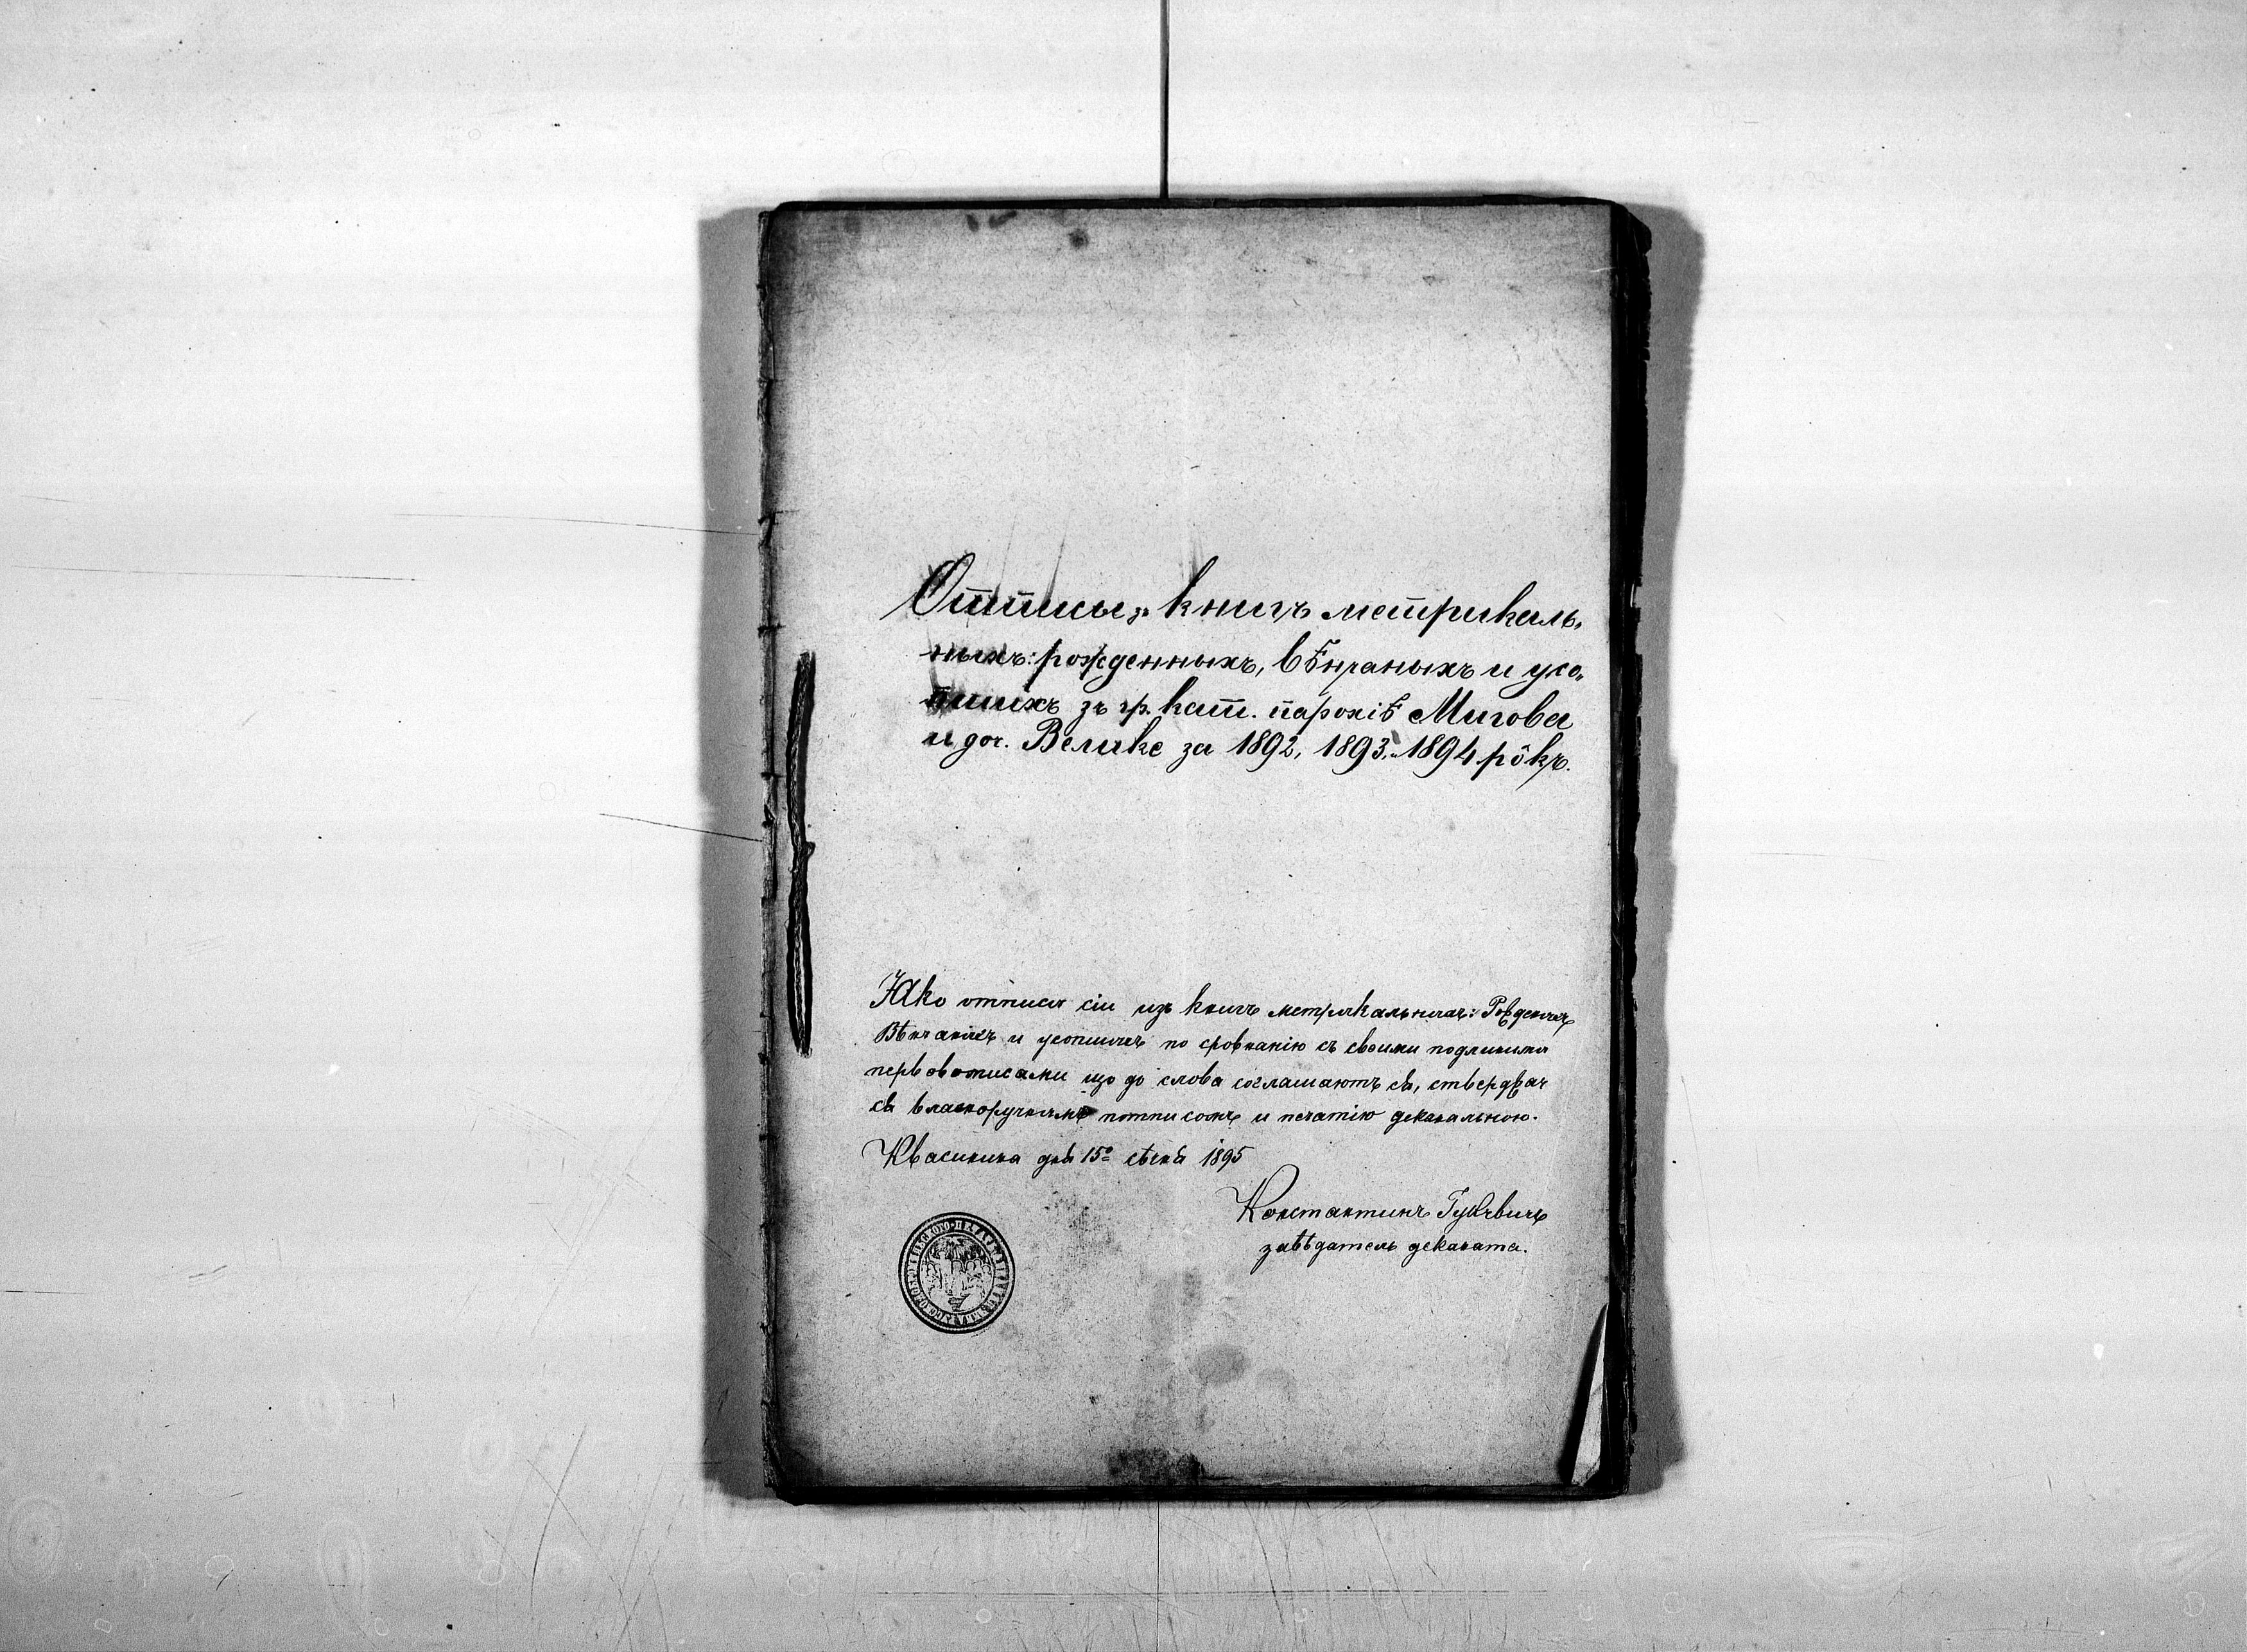 Отписы зъ книгъ метрикаль-
ныхъ: рожденныхъ, вѣнчаныхъ и усо-
пшихъ зъ гр. кат. парохіѣ Мигова
и доч. Велике за 1892, 1893 и 1894 рôкъ.
Яко отписы сіи изъ книгъ метрикальныхъ: Рождены́хъ
Вѣнчаныхъ и усопшихъ по сровнанію съ своими подлиными
первовописами що до слова соглашаютъ ся, ствержаю
ся власноручнымъ потписомъ и печатію деканальною.
Квасинина дня 15º сѣсня 1895
Константинъ
завѣдатель деканата.